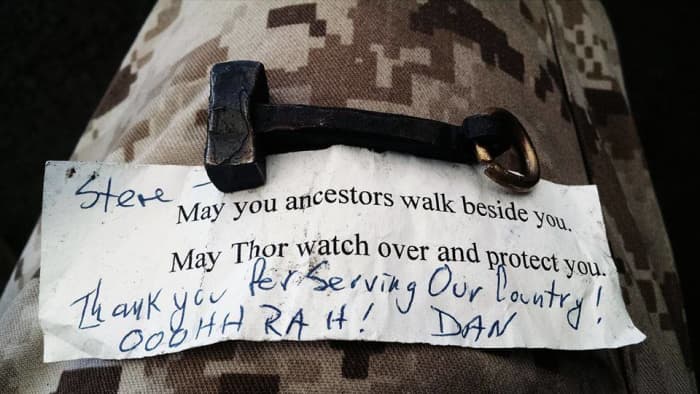 Steve -
May you ancestors walk beside you.
May Thor watch over and protect you.
Thank you For Serving Our Country!
OOOHH RAH! DAN